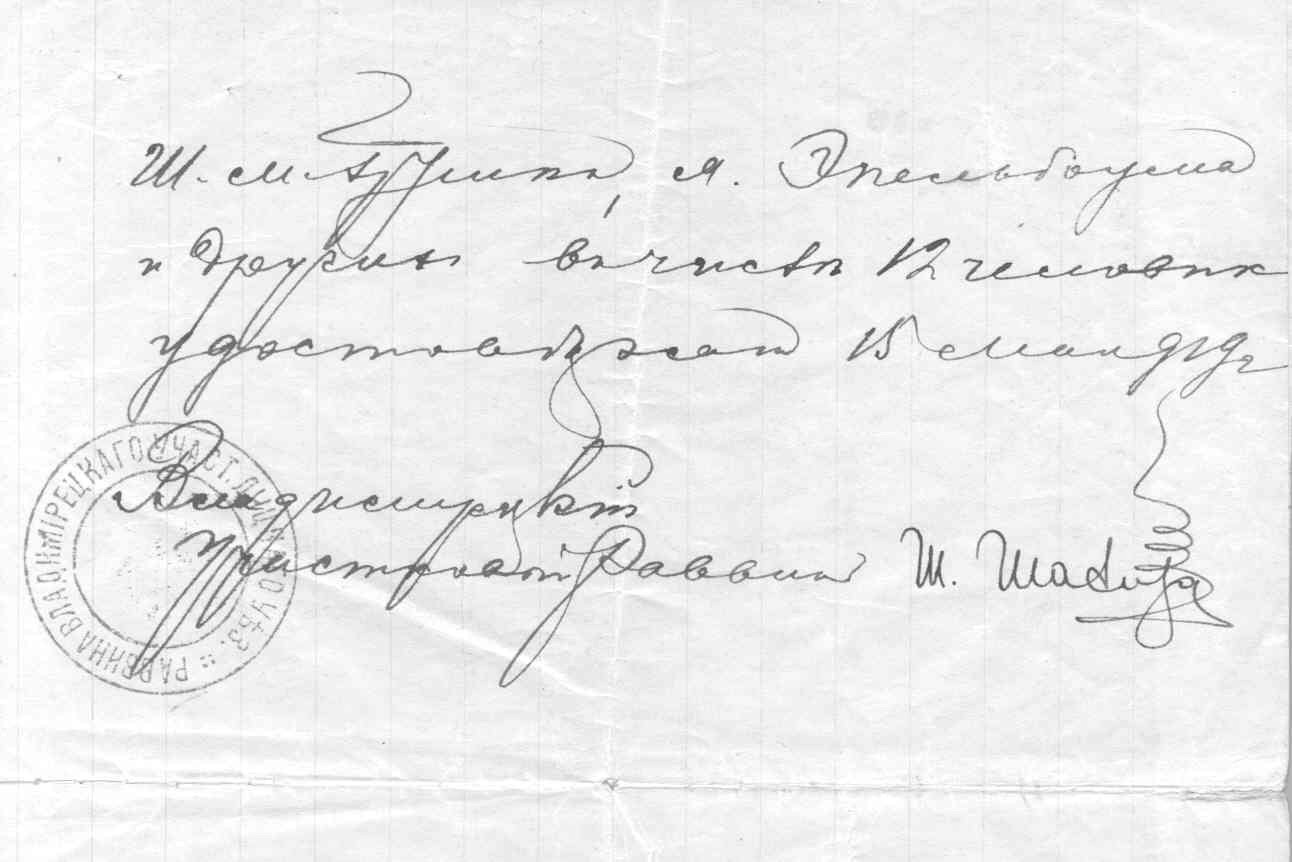 Ш. М. Я. Эпельбаума
и другихъ въ числѣ 12 человѣк
удостовѣряю 15 мая
Владимірецкій
Участковый Раввинъ Ш. Шапиро
РАВВИНА ВЛАДИМІРЕЦКАГО УЧАСТ. УѢЗ.